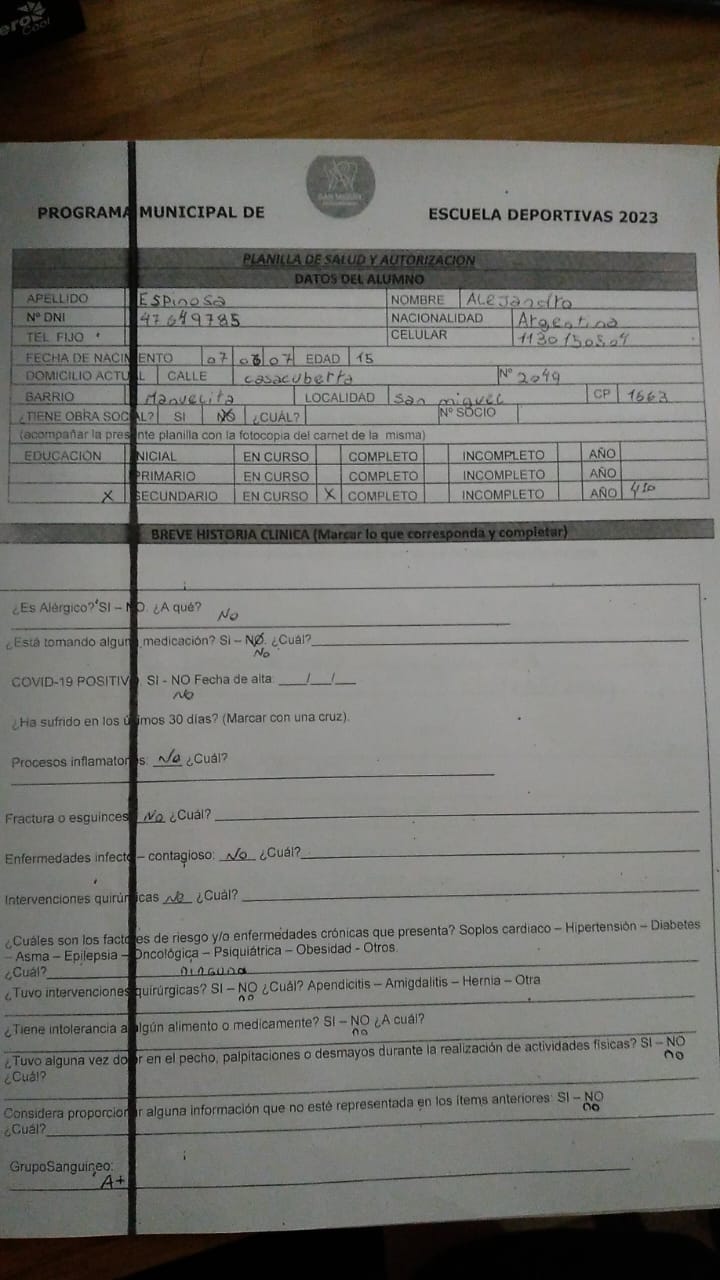 ero
Cool
SAN MIGUEL
PROGRAMA MUNICIPAL DE ESCUELA DEPORTIVAS 2023
PLANILLA DE SALUD Y AUTORIZACION
DATOS DEL ALUMNO
APELLIDO ESPinosa NOMBRE ALEJandro
Nº DNI 47649785 NACIONALIDAD Argentina
TEL FIJO CELULAR
FECHA DE NACIMIENTO 07 07 EDAD 15
DOMICILIO ACTUAL CALLE casacuberta Nº 2049
BARRIO Manuelita LOCALIDAD San miguel CP 1663
¿TIENE OBRA SOCIAL? SI NO ¿CUÁL? Nº SOCIO
(acompañar la presente planilla con la fotocopia del carnet de la misma)
EDUCACIÓN INICIAL EN CURSO COMPLETO INCOMPLETO AÑO
PRIMARIO EN CURSO COMPLETO INCOMPLETO AÑO
X SECUNDARIO EN CURSO X COMPLETO INCOMPLETO AÑO
BREVE HISTORIA CLINICA (Marcar lo que corresponda y completar)
¿Es Alérgico? SI – NO. ¿A qué? No
¿Está tomando alguna medicación? Si – NO. ¿Cuál?
No
COVID-19 POSITIVO. SI - NO Fecha de alta: ___/___/___
No
¿Ha sufrido en los últimos 30 días? (Marcar con una cruz).
Procesos inflamatorios: No ¿Cuál?
Fractura o esguinces No ¿Cuál?
Enfermedades infecto – contagioso: No ¿Cuál?
Intervenciones quirúrgicas No ¿Cuál?
¿Cuáles son los factores de riesgo y/o enfermedades crónicas que presenta? Soplos cardiaco – Hipertensión – Diabetes
– Asma – Epilepsia – Oncológica – Psiquiátrica – Obesidad - Otros.
¿Cuál? ninguna
¿Tuvo intervenciones quirúrgicas? SI – NO ¿Cuál? Apendicitis – Amigdalitis – Hernia – Otra
no
¿Tiene intolerancia algún alimento o medicamente? SI – NO ¿A cuál?
no
¿Tuvo alguna vez dolor en el pecho, palpitaciones o desmayos durante la realización de actividades físicas? SI – NO
no
¿Cuál?
Considera proporcionar alguna información que no esté representada en los ítems anteriores: SI – NO
no
¿Cuál?
GrupoSanguineo:
A+